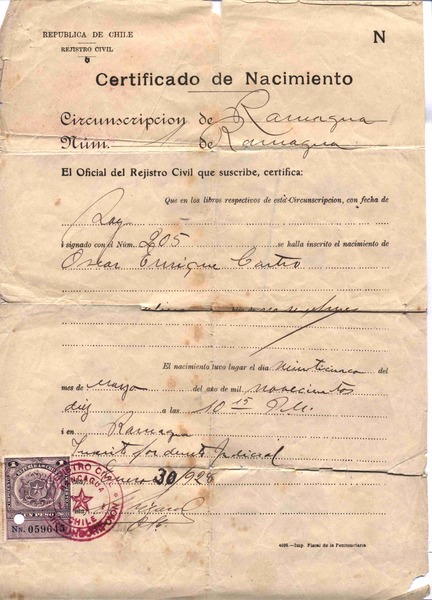 REPUBLICA DE CHILE
REJISTRO CIVIL
N
Certificado de Nacimiento
Circunscripcion de Rancagua
Núm. 1 de Rancagua
El Oficial del Rejistro Civil que suscribe, certifica:
Que en los libros respectivos de esta Circunscripcion, con fecha de
hoy
i signado con el Núm. 205 se halla inscrito el nacimiento de
Oscar Enrique Castro
El nacimiento tuvo lugar el dia veinticinco del
mes de Marzo del año de mil novecientos
diez a las 10 15 P.M.
i en Rancagua
Judicial
Enero 30/928
REGISTRO CIVIL
RANCAGUA
CHILE
1 1
UN PESO
No. 059645
4098.-Imp. Fiscal de la Penitenciaria